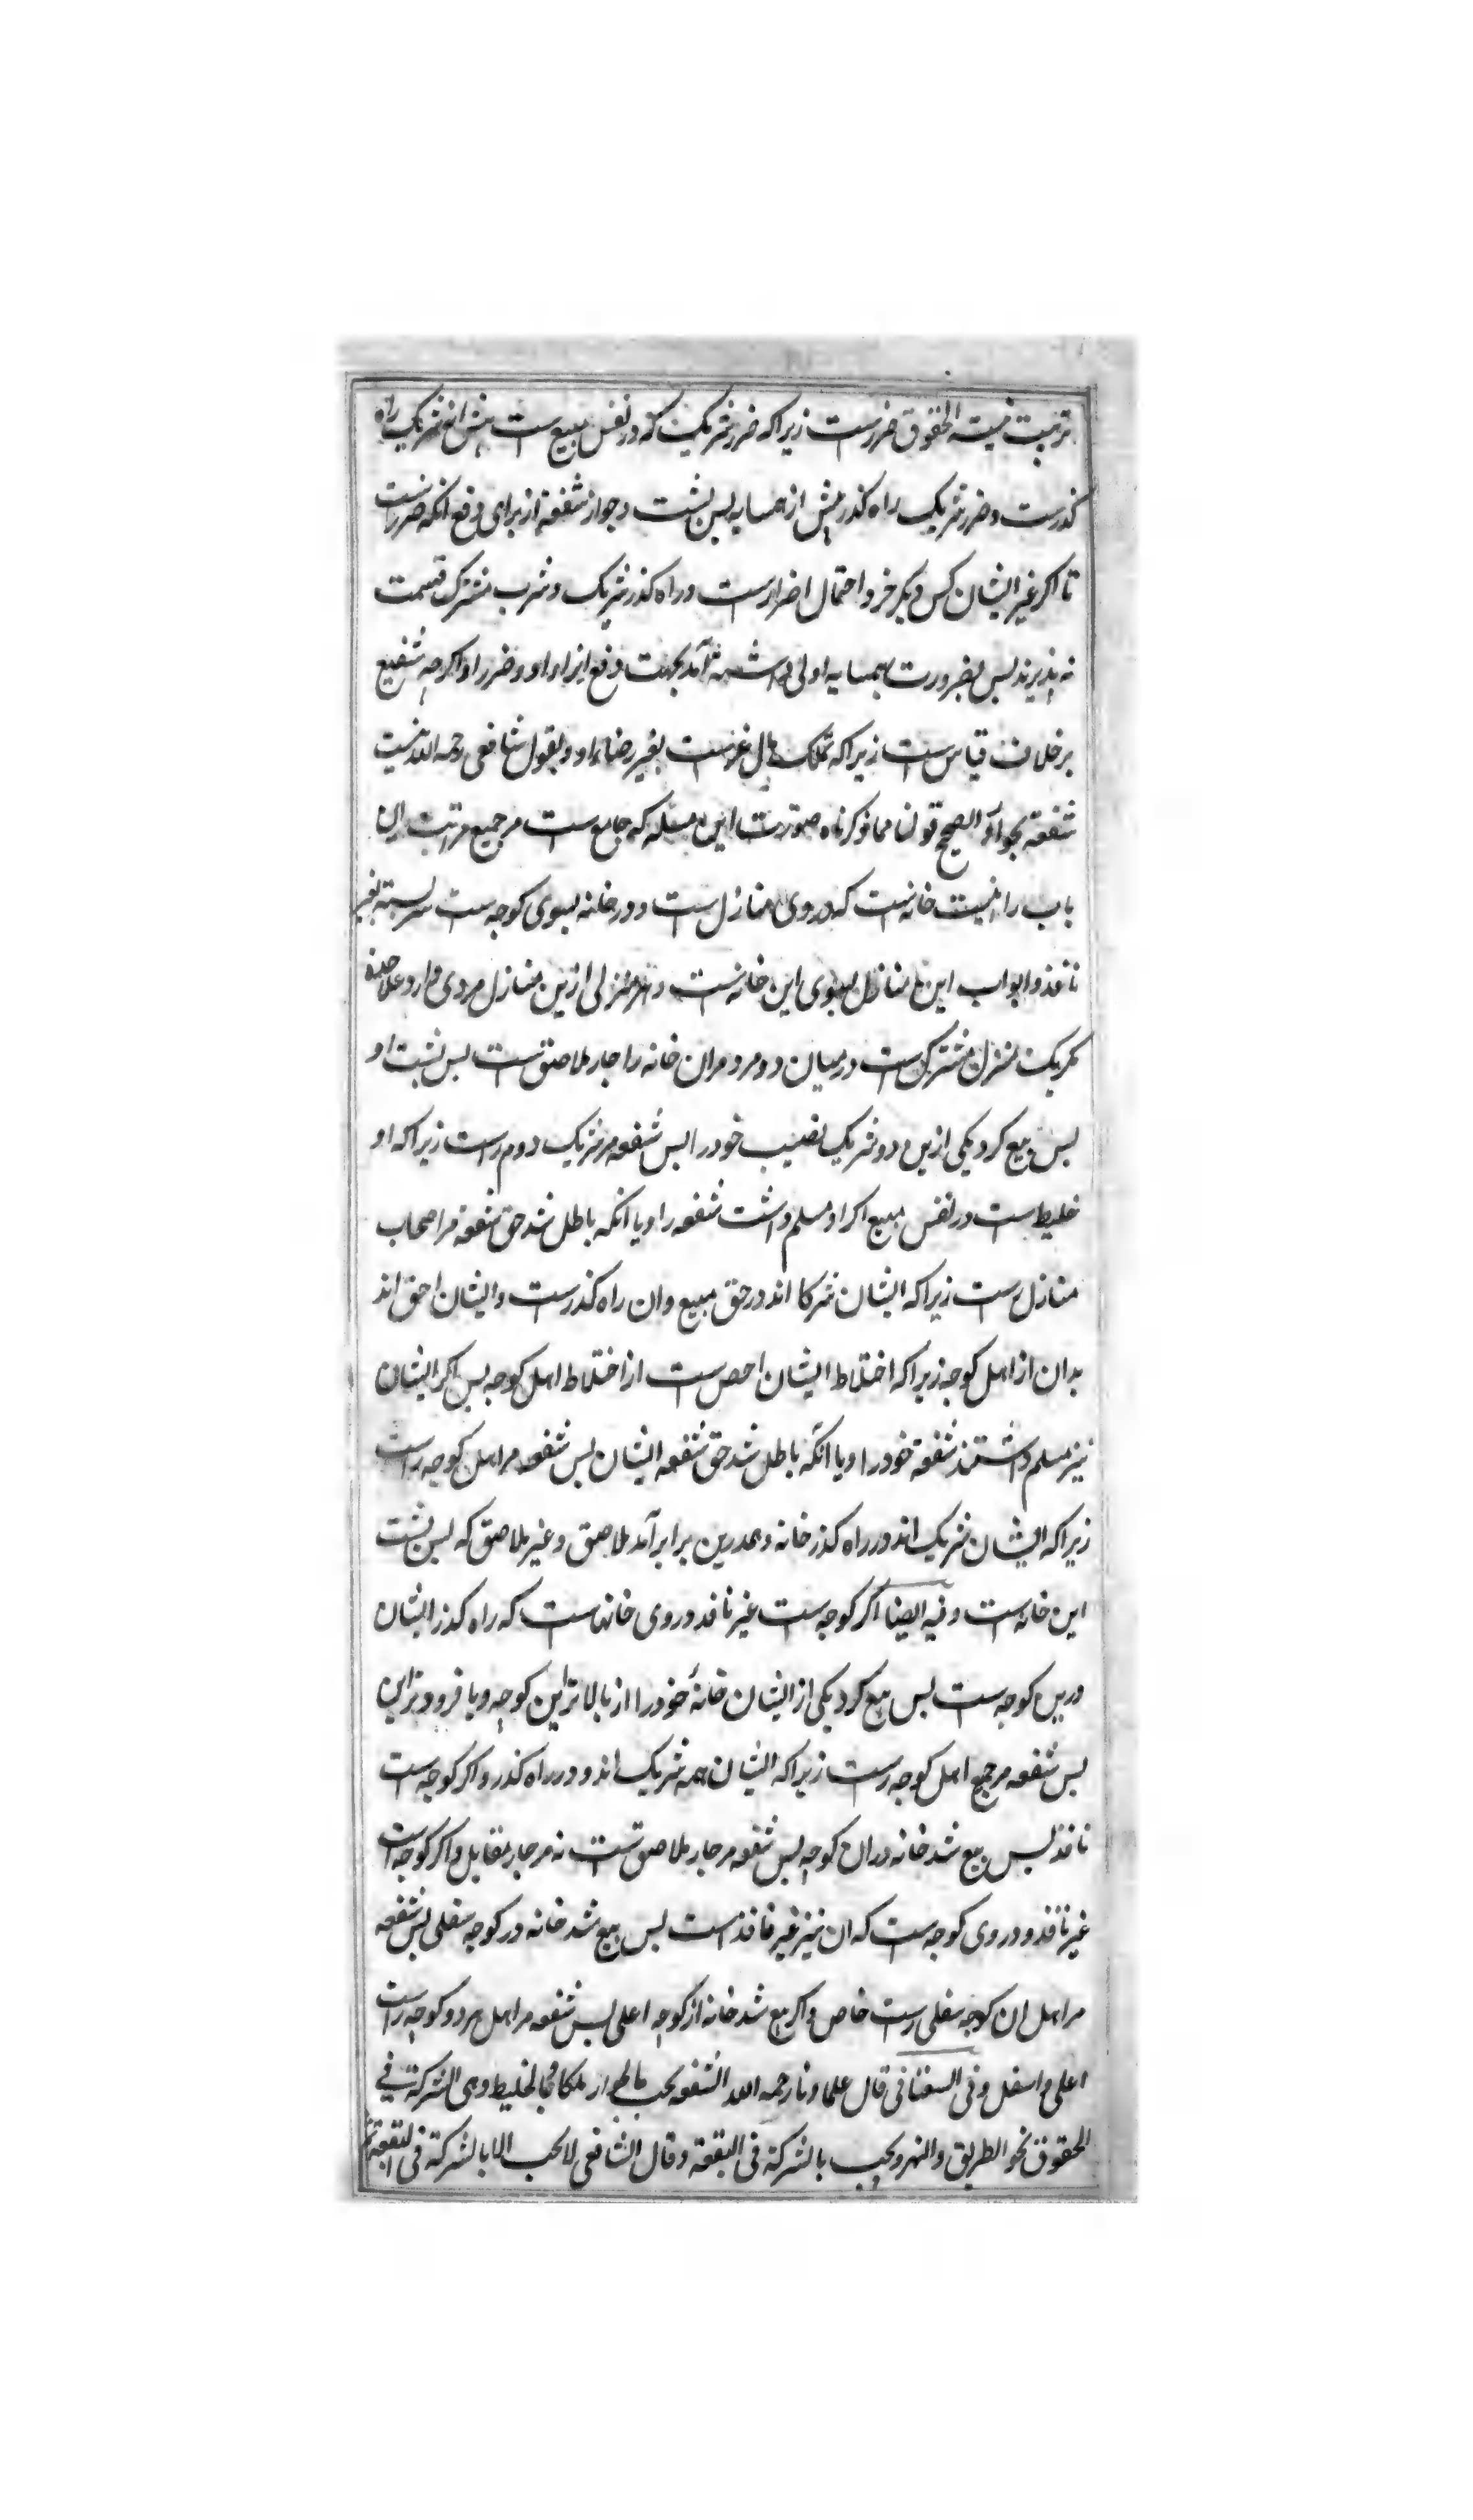 ترتیب الحقوق ضررست زیراکه ضرر شریک که در نفس مبیع ست بیش از شریک راه
کذرست و ضرر شریک راه کذر بیش از همسایه پس پشت و جواز شفعة از برای دفع انکه ضررست
تا اکر غیر ایشان کس دیکر خرد احتمال اضرارست و راه کذر شریک و شرب مشترک قسمت
نه پذیرند پس بضرورت همسایه اولی آمد بجهت دفع ایزاء او و ضرر او اکرچه شفیع
برخلاف قیاس ست زیراکه تملک مال غیرست بغیر رضاء او و بقول شافعی رحمه الله نیست
شفعة بجوار و الصحیح قولنا مما ذکرناه صورت این مسله که جامع ست مر جمیع مرتبت این
باب را نیست خانه ست که در وی منازل ست و در خانه بسوی کوچه ست سربسته بغیر
نافذ و ابواب این منازل بسوی این خانه ست و هر منزلی ازین منازل مردی دارد علاحده
مکر یک منزل مشترک ست درمیان دو مرد مر ان خانه را جار ملاصق ست پس پشت او
پس بیع کرد یکی ازین دو شریک نصیب خود را پس شفعه مر شریک دوم راست زیراکه او
خلیط ست در نفس مبیع اکر او مسلم داشت شفعه را و یا انکه باطل شد حق شفعة مر اصحاب
منازل راست زیراکه ایشان شرکا اند در حق مبیع و ان راه کذرست و ایشان احق اند
بدان از اهل کوچه زیراکه اختلاط ایشان اخص ست از اختلاط اهل کوچه پس اکر ایشان
نیز مسلم داشتند شفعة خود را و یا آنکه باطل شد حق شفعه ایشان پس شفعه مر اهل کوچه راست
زیراکه ایشان شریک اند در راه کذر خانه و همدرین برابر آمد ملاصق و غیر ملاصق که پس پشت
این خانه ست و فیه ایضا اکر کوچه ست غیر نافذ در وی خانهاست که راه کذر ایشان
درین کوچه ست پس بیع کرد یکی از ایشان خانهٔ خود را از بالاتر این کوچه و یا فروتر این
پس شفعه مر جمیع اهل کوچه راست زیراکه ایشان همه شریک اند و در راه کذر و اکر کوچه است
نافذ پس بیع شد خانه در ان کوچه پس شفعه مر جار ملاصق ست نه مر جار مقابل و اکر کوچه است
غیر نافذ و در وی کوچه ست که ان نیز غیر نافذ است پس بیع شد خانه در کوچه سفلی پس شفعه
مر اهل ان کوچه سفلی راست خاص و اکر بیع شد خانه از کوچه اعلی پس شفعه مر اهل هر دو کوچه راست
اعلی و اسفل و فی السغناقی قال علماونا رحمه الله الشفعه یجب بالجوار کما یجب بالخلیط وهی الشرکة فی
الحقوق نحو الطریق والنهر ویجب بالشرکة فی البقعة وقال الشافعی لا یجب الا بالشرکة فی البقعة ثم